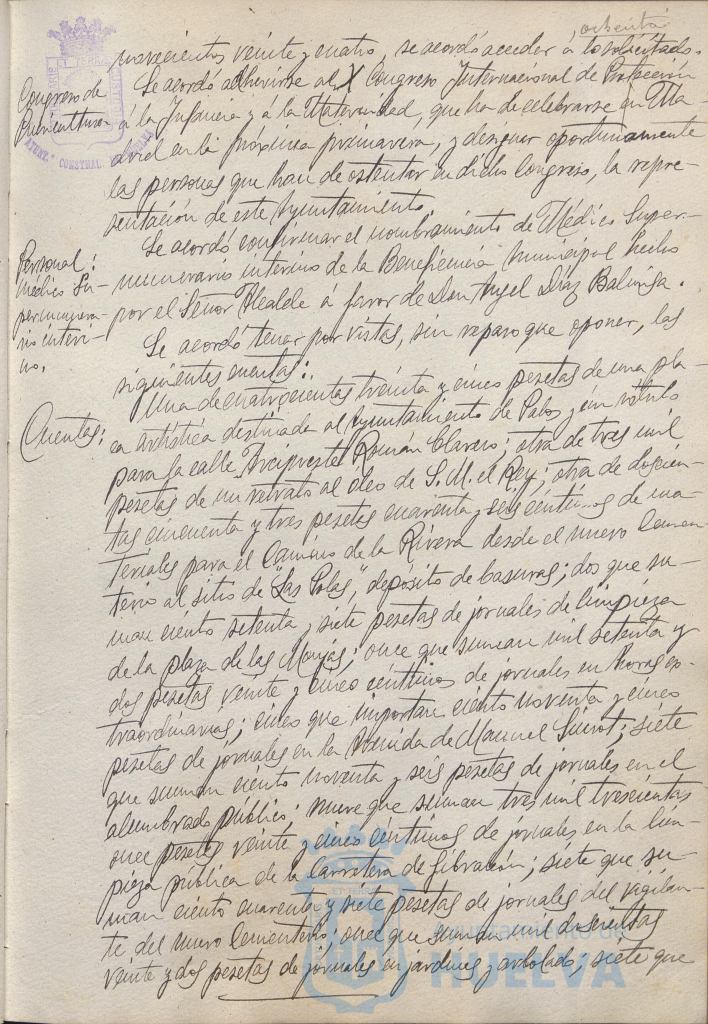 ochenta
novecientos veinte y cuatro, se acordó acceder á lo solicitado.
Congreso de Puericultura
Se acordó adherirse al X Congreso Internacional de Protección
á la Infancia y á la Maternidad, que ha de celebrarse en Ma-
drid en la próxima primavera, y designar oportunamente
las personas que han de ostentar en dicho Congreso, la repre-
sentación de este Ayuntamiento.
Personal: Médico Su-
pernumera-
rio interi-
no.
Se acordó confirmar el nombramiento de Médico Super-
numerario interino de la Beneficencia Municipal hecho
por el Señor Alcalde á favor de Don Angel Díaz
Se acordó tener por vistas, sin reparo que oponer, las
siguientes cuentas:
Cuentas:
Una de cuatrocientas treinta y cinco pesetas de una pla-
ca artística destinada al Ayuntamiento de Palos y un rótulo
para la calle Arcipreste Román Clavero; otra de tres mil
pesetas de un retrato al óleo de S. M. el Rey; otra de doscien-
tas cincuenta y tres pesetas cuarenta y seis céntimos de ma-
teriales para el Camino de la Rivera desde el nuevo Cemen-
terio al sitio de "Las Palas", depósito de basuras; dos que su-
man ciento setenta y siete pesetas de jornales de limpieza
de la plaza de las Monjas; once que suman mil setenta y
dos pesetas veinte y cinco céntimos de jornales en horas ex-
traordinarias; cinco que importan ciento noventa y cinco
pesetas de jornales en la Avenida de Manuel Siurot; siete
que suman ciento noventa y seis pesetas de jornales en el
alumbrado público; nueve que suman tres mil trescientas
once pesetas veinte y cinco céntimos de jornales en la lim-
pieza pública de la Carretera de Gibraleón; siete que su-
man ciento cuarenta y siete pesetas de jornales del vigilan-
te del nuevo Cementerio; once que suman mil doscientas
veinte y dos pesetas de jornales en jardines y arbolado; siete que
Ayuntamiento de
HUELVA